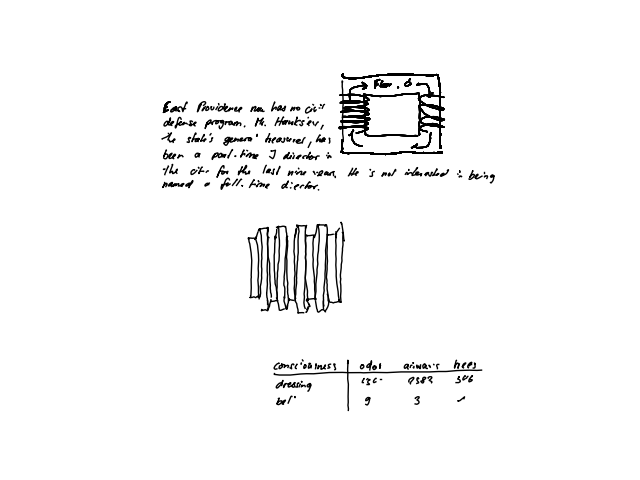 East Providence now has no civil
defense program. Mr. Hawksley,
the state's general treasurer, has
been a part-time director in
the city for the last nine years. He is not interested in being
named a full-time director.
Flux, Φ
consciousness odor airways trees
dressing
bell 9 3